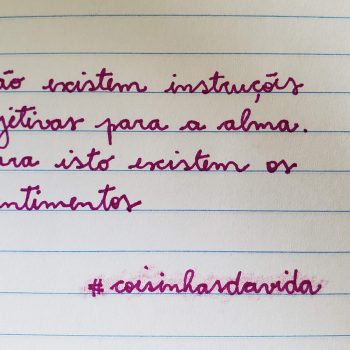 ão existem instruções
jetivas para a alma.
ara isto existem os
ntimentos
#coisinhasdavida